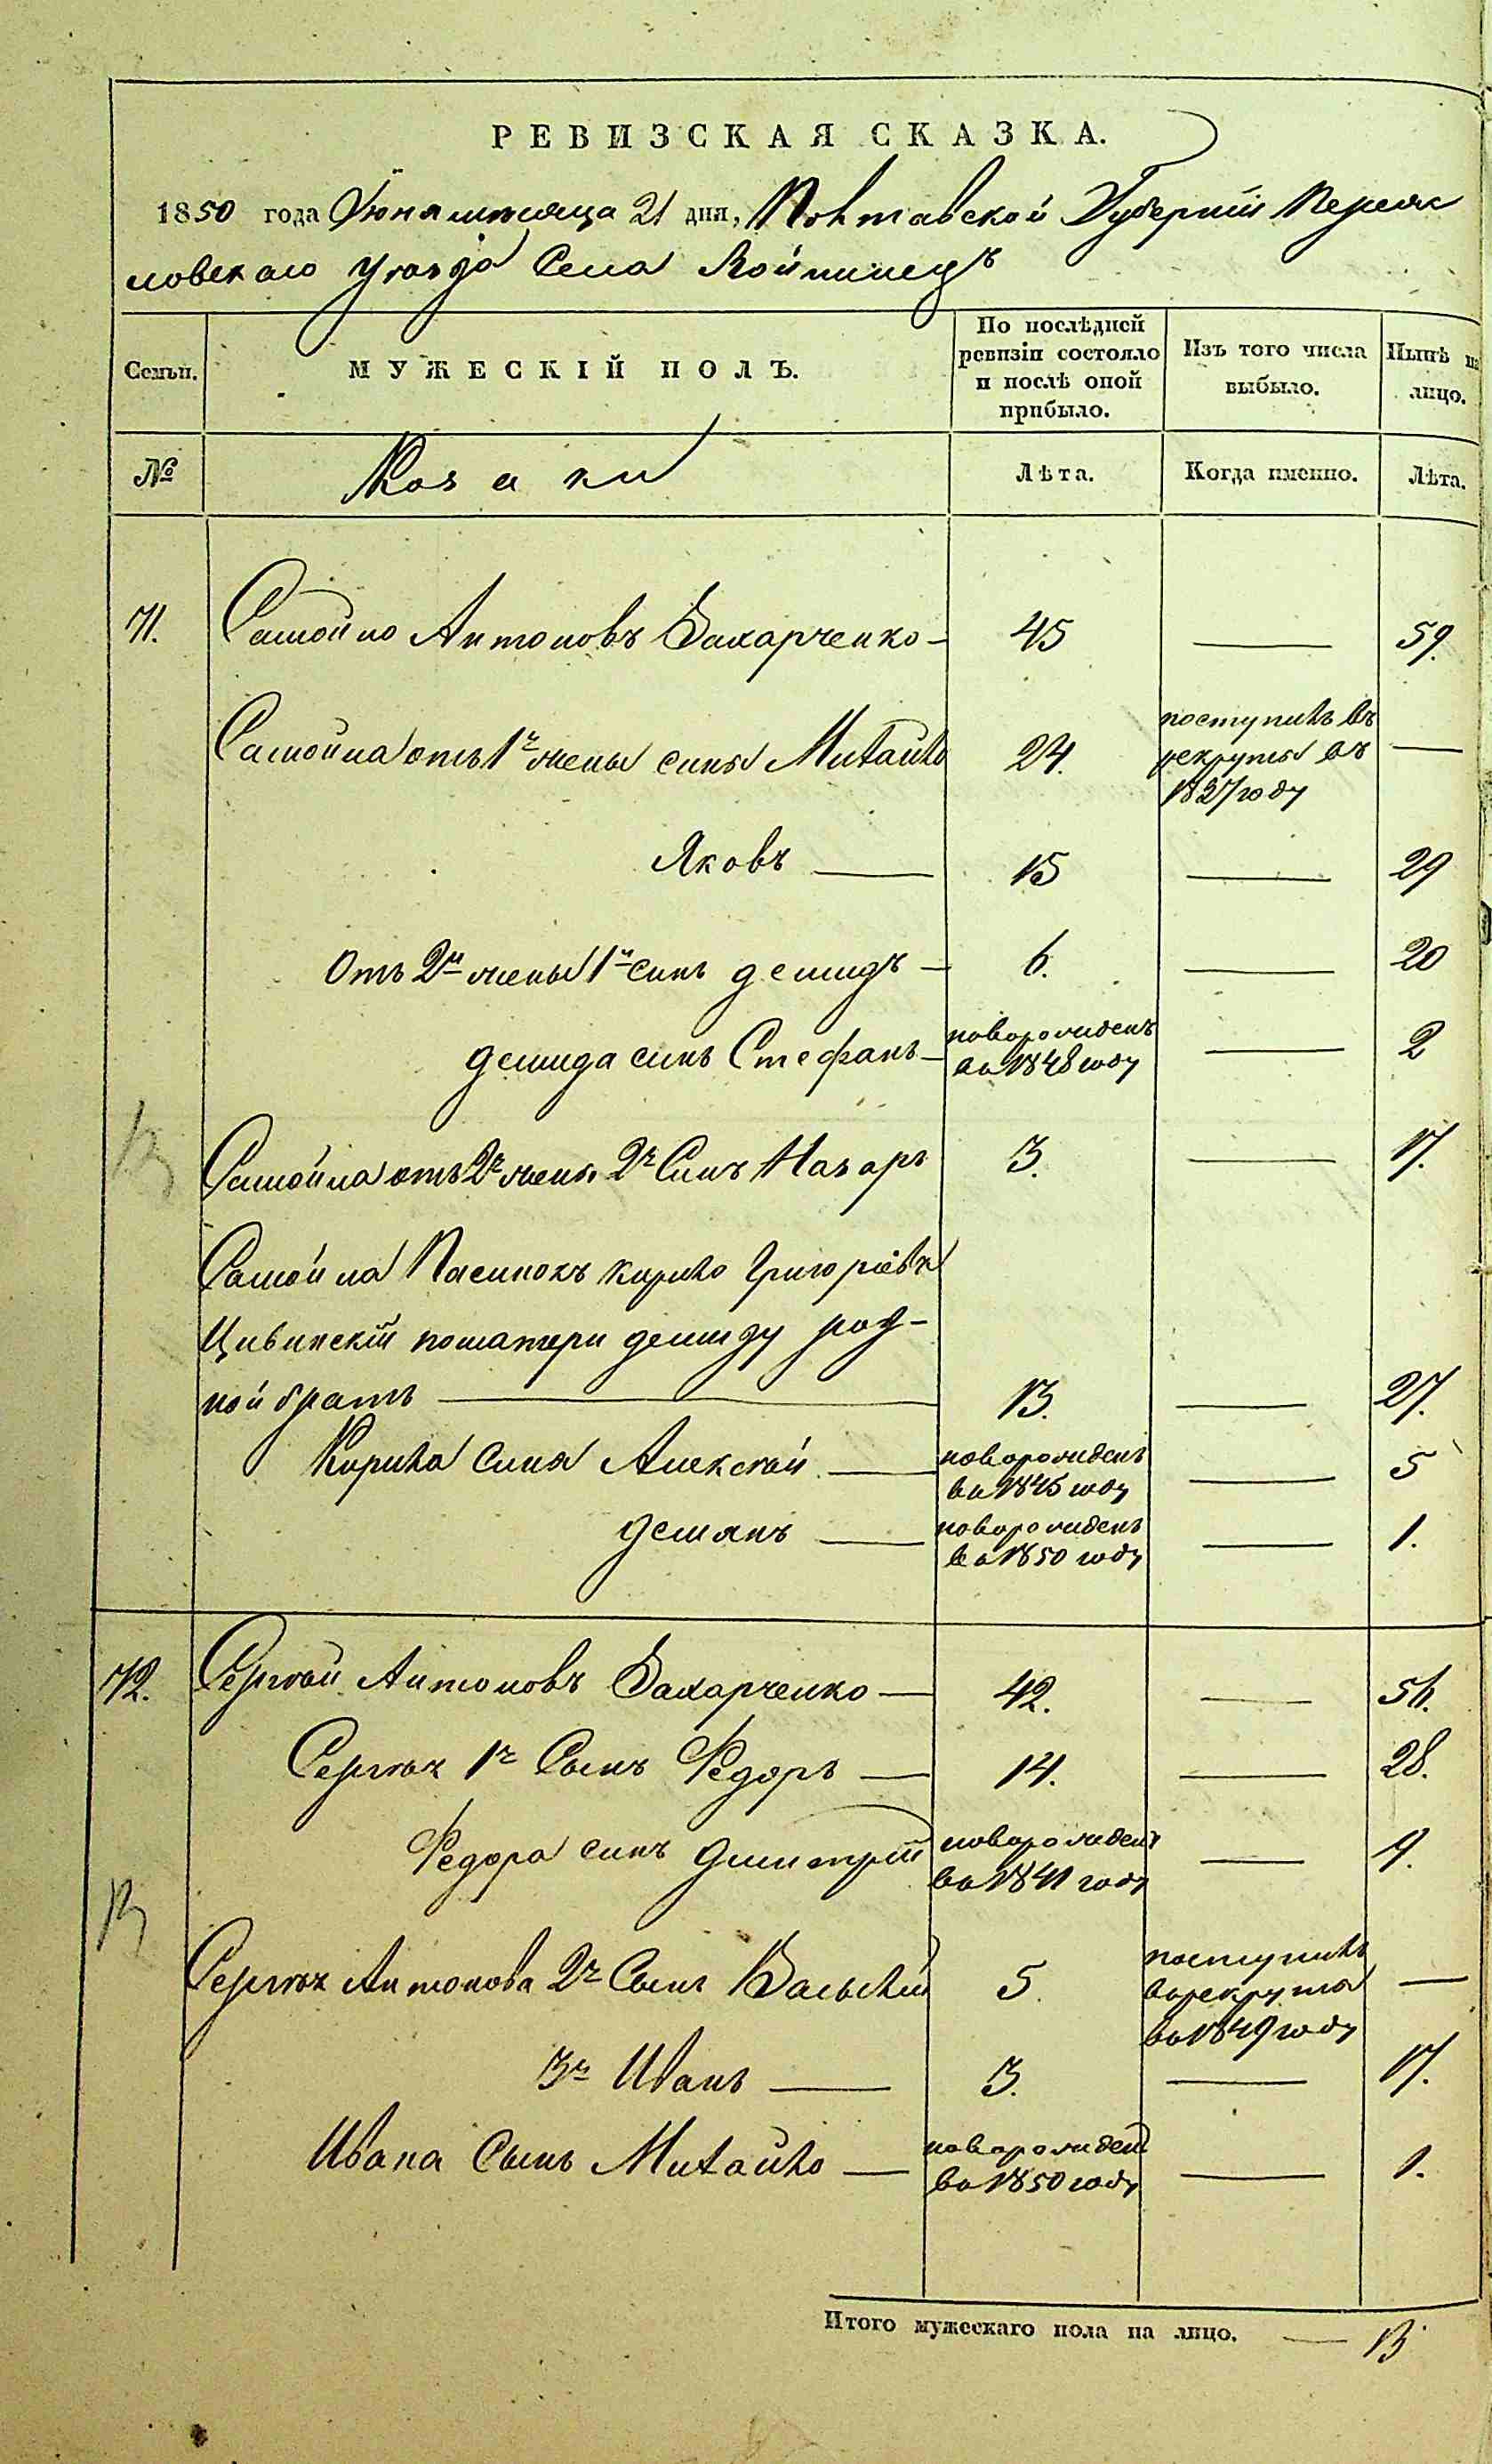 РЕВИЗСКАЯ СКАЗКА.
1850 года Июня мѣсяца 21 дня, Полтавской Губерніи Переяс
ловскаго уѣзда Села Войтинецъ
Семьи. МУЖЕСКІЙ ПОЛЪ. По послѣдней ревизіи состояло и послѣ оной прибыло. Изъ того числа выбыло. Нынѣ на лицо.
№ Козаки Лѣта. Когда именно. Лѣта.
71. Самойло Антоновъ Захарченко — 45 — 59.
Самойла отъ 1й жены сины Михайло 24. поступилъ въ рекруты въ 1837 году —
Яковъ — 15 — 29
Отъ 2й жены 1й синъ Демидъ — 6. — 20
Демида синъ Стефанъ — новорожденъ во 1848 году — 2
Самойла отъ 2й жены 2й Синъ Назаръ 3. — 17.
Самойла Пасинокъ Кирило Григоріевъ
Цивинскій поматери Демиду род-
ной братъ — 13. — 27.
Кирила Сины Алексѣй — новорожденъ во 1845 году — 5
Демянъ — новорожденъ во 1850 году — 1.
72. Сергѣй Антоновъ Захарченко — 42. — 56.
Сергѣя 1й Сынъ Федоръ — 14. — 28.
Федора синъ Дмитрій новорожденъ во 1841 году — 9.
Сергѣя Антонова 2й Сынъ Васылій 5. поступилъ ворекруты во 1849 году —
3й Иванъ — 3. — 17.
Ивана Сынъ Михайло — новорожден во 1850 году — 1.
Итого мужескаго пола на лицо. — 13